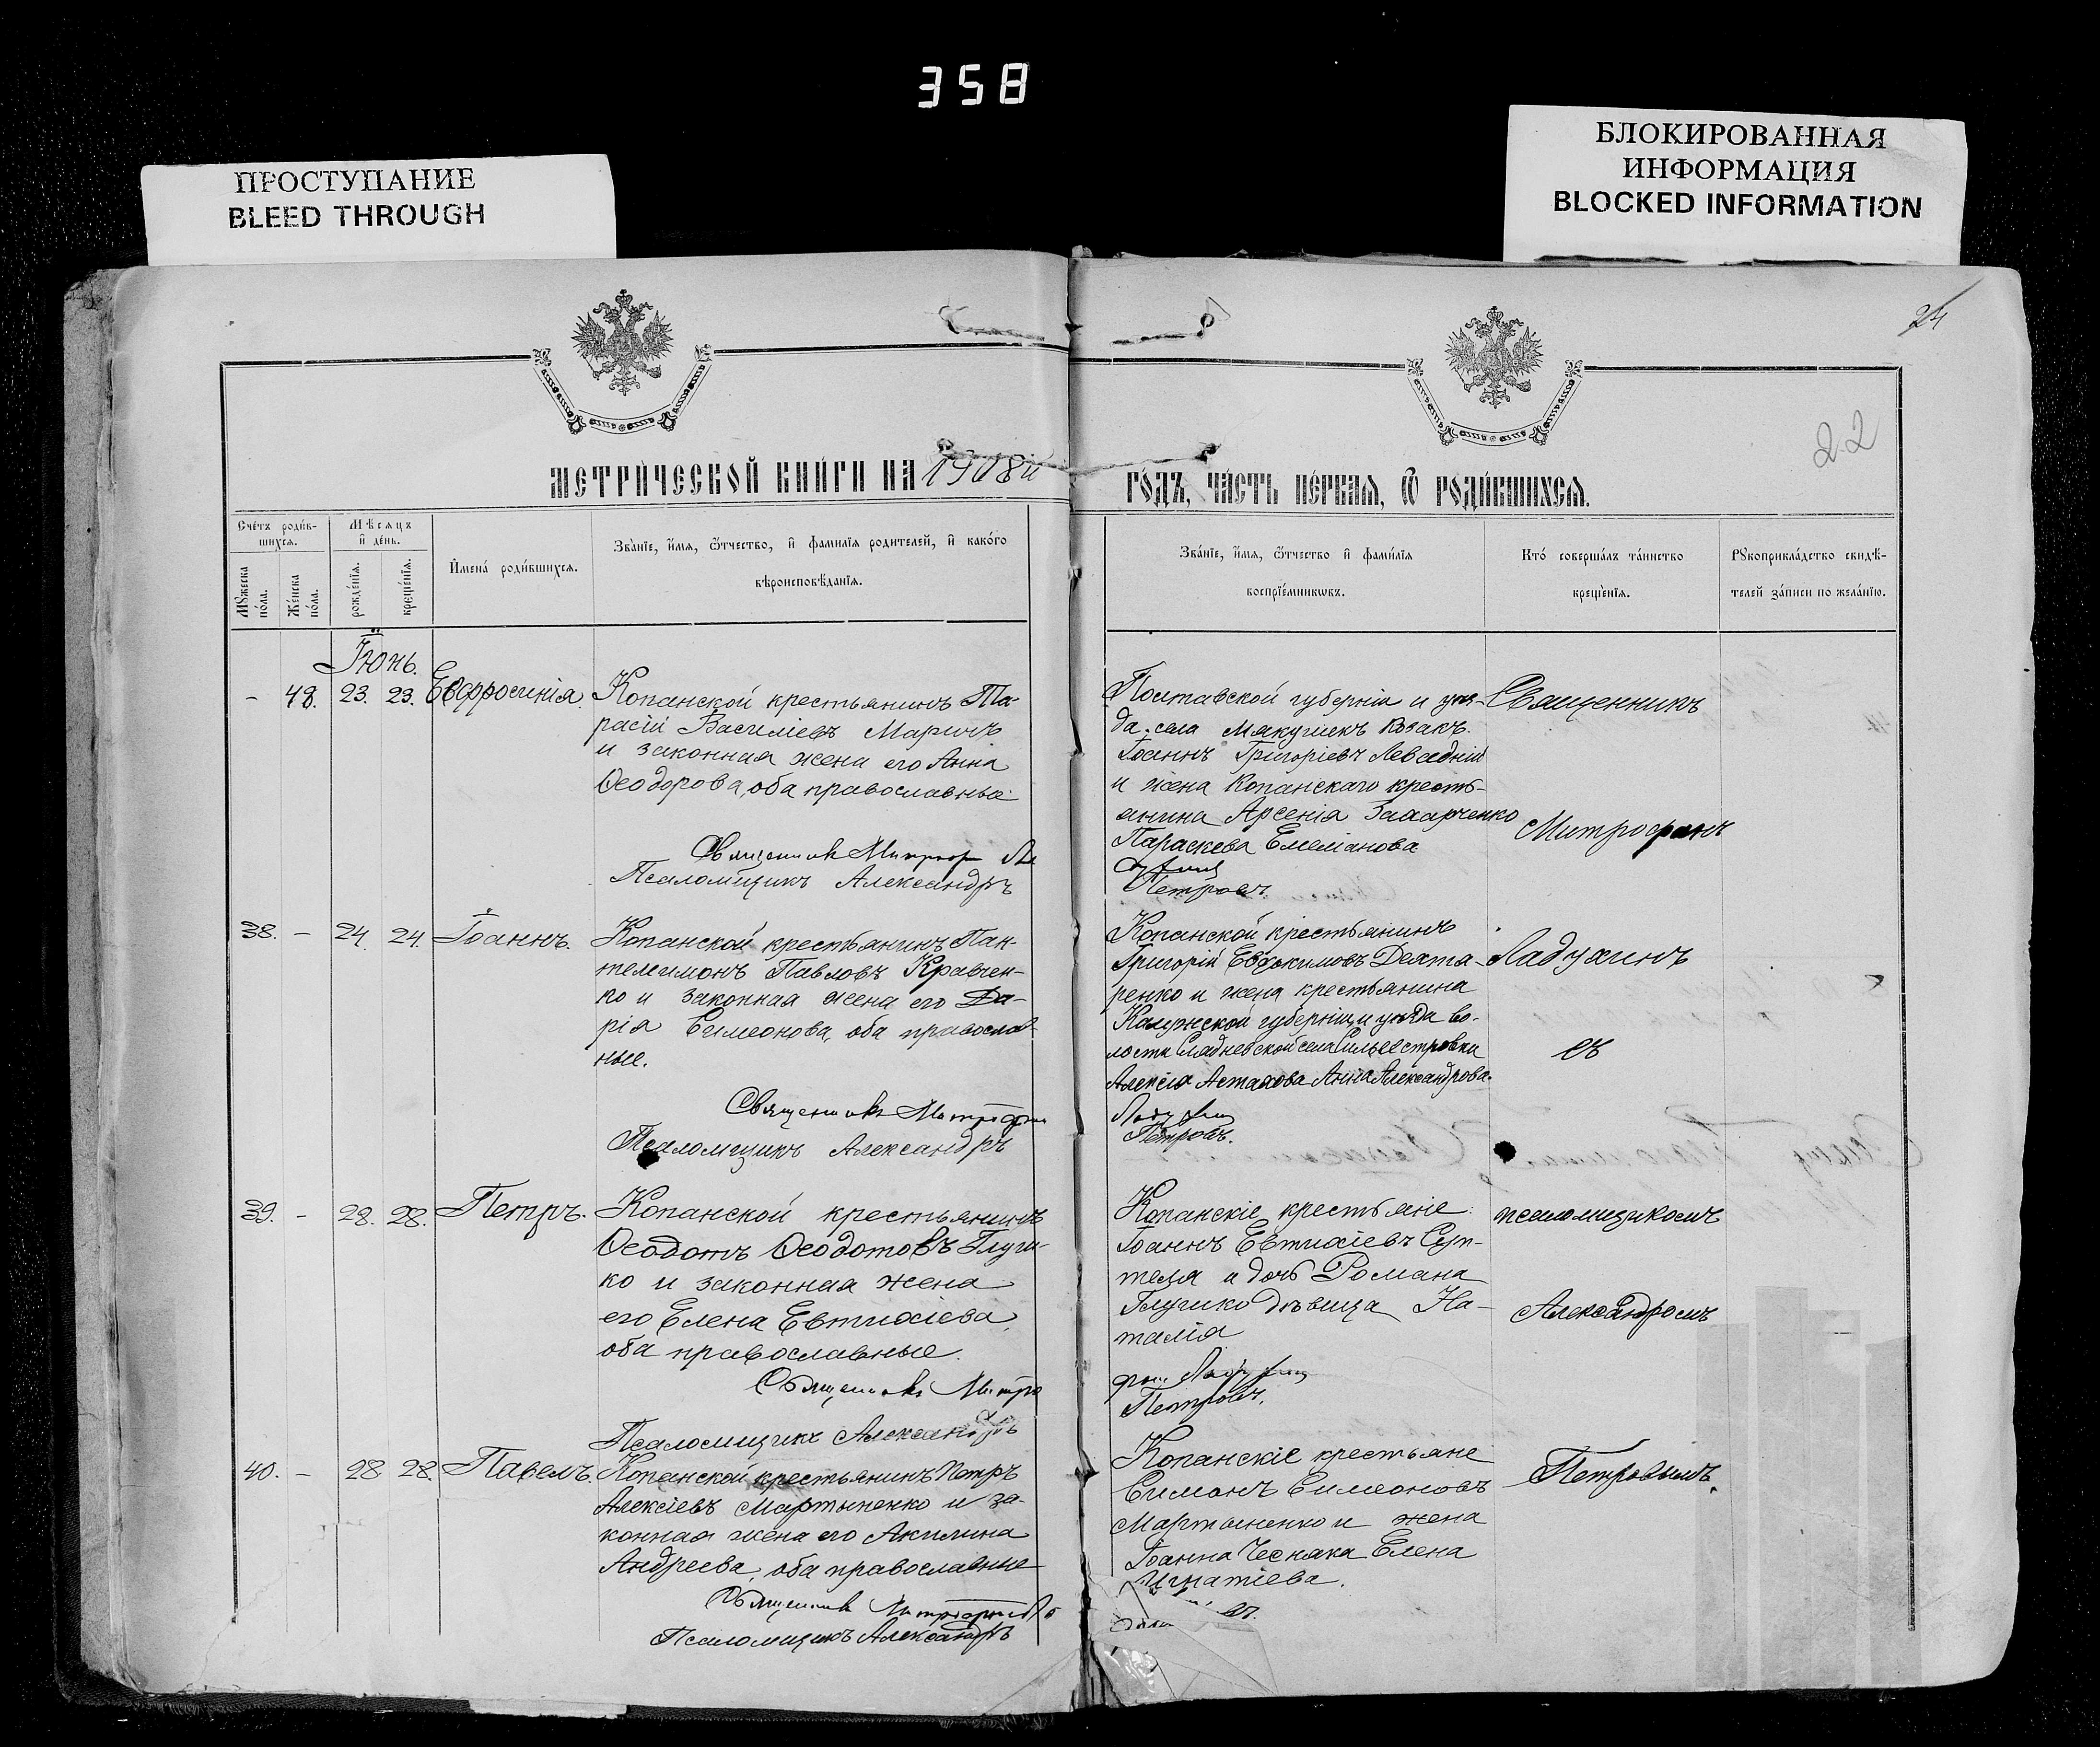 358
ПРОСТУПАНИЕ
BLEED THROUGH
БЛОКИРОВАННАЯ
ИНФОРМАЦИЯ
BLOCKED INFORMATION
24
22
МЕТРИ́ЧЕСКОЙ КНИ́ГИ НА 1908й
ГО́ДЪ, ЧА́СТЬ ПЕ́РВАѦ, Ѿ РОДИ́ВШИХСѦ.
Сче́тъ роди́в-
шихсѧ.
Мѣсѧцъ
и҆ де́нь.
Мꙋжеска
по́ла.
Же́нска
по́ла.
рожде́нїѧ.
креще́нїѧ.
И҆мена́ роди́вшихсѧ.
Зва́нїе, и҆́мѧ, ѻ҆́тчество, и҆ фами́лїѧ родителей, и҆ како́го
вѣроисповѣ́данїѧ.
Зва́нїе, и҆́мѧ, ѻ҆́тчество и҆ фами́лїѧ
воспрїе́мникѡвъ.
Кто́ соверша́лъ та́инство
креще́нїѧ.
Рꙋкоприкла́дство свидѣ́-
телей за́писи по жела́нїю.
Іюнь.
- 48. 23. 23. Евфросинія.
Копанской крестьянинъ Та-
расій Василіевъ Маричъ
и законная жена его Анна
Ѳеодорова, оба православные
Священникъ Митроф Ла
Псаломщикъ Александръ
Полтавской губерніи и уѣз-
да села Мякушекъ козакъ
Іоаннъ Григоріевъ Левадній
и жена Копанскаго кресть-
янина Арсенія Захарченко
Параскева Емеліанова
Петровъ.
Священникъ
Митрофанъ
38. - 24. 24. Іоаннъ.
Копанской крестьянинъ Пан-
телеимонъ Павловъ Кравчен-
ко и законная жена его Да-
рія Симеонова, оба православ-
ные.
Священникъ Митрофан
Псаломщикъ Александръ
Копанской крестьянинъ
Григорій Евдокимовъ Дехта-
ренко и жена крестьянина
Калужской губерніи и уѣзда во-
лости села Сильвестровки
Алексія Астахова Анна Александрова.
Ладухин
Петровъ.
Ладухинъ
съ
39. - 28. 28. Петръ.
Копанской крестьянинъ
Ѳеодотъ Ѳеодотовъ Глуш-
ко и законная жена
его Елена Евтихіева,
оба православные.
Священникъ Митро
Псаломщикъ Александръ
Копанскіе крестьяне:
Іоаннъ Евтихіевъ Суп-
теля и дочь Романа
Глушко дѣвица На-
талія
фан Ладухин
Петровъ.
псаломщикомъ
Александромъ
40. - 28. 28. Павелъ.
Копанской крестьянинъ Петръ
Алексіевъ Мартыненко и за-
конная жена его Акилина
Андреева, оба православные
Священникъ Митрофан Ла
Псаломщикъ Александръ
Копанскіе крестьяне
Симонъ Симеоновъ
Мартыненко и жена
Іоанна Чесняка Елена
Игнатіева.
въ.
Петровымъ.